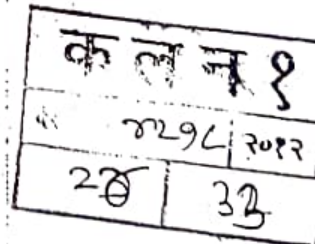 क ल न १
४२९८ २०१२
33